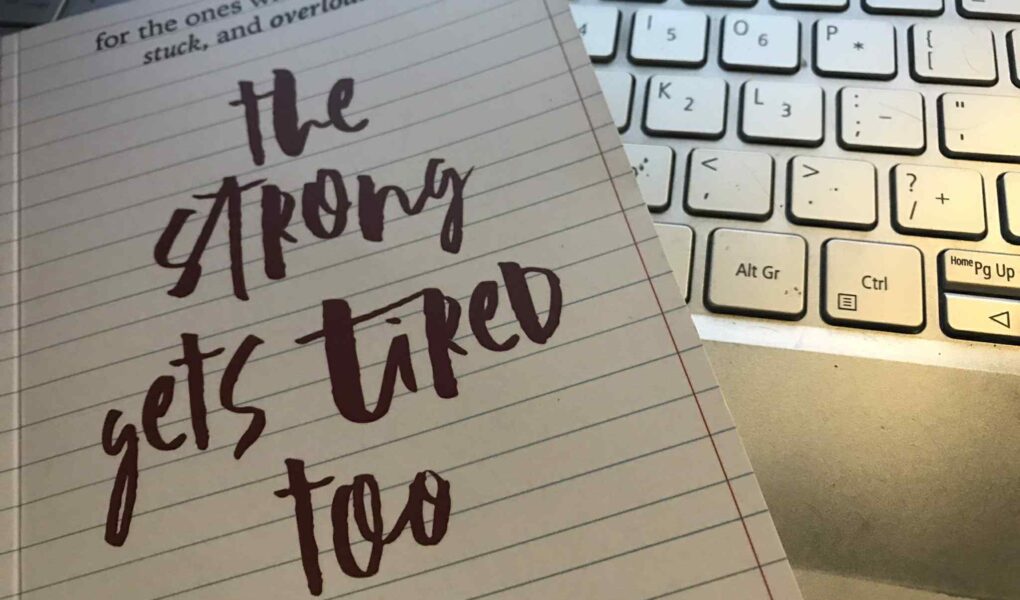 for the ones
stuck, and
the
strong
gets tired
too
4
I 5
O 6
P *
{ [
K 2
L 3
: ; -
" '
< ,
> .
? / +
Alt Gr
Ctrl
Home Pg Up